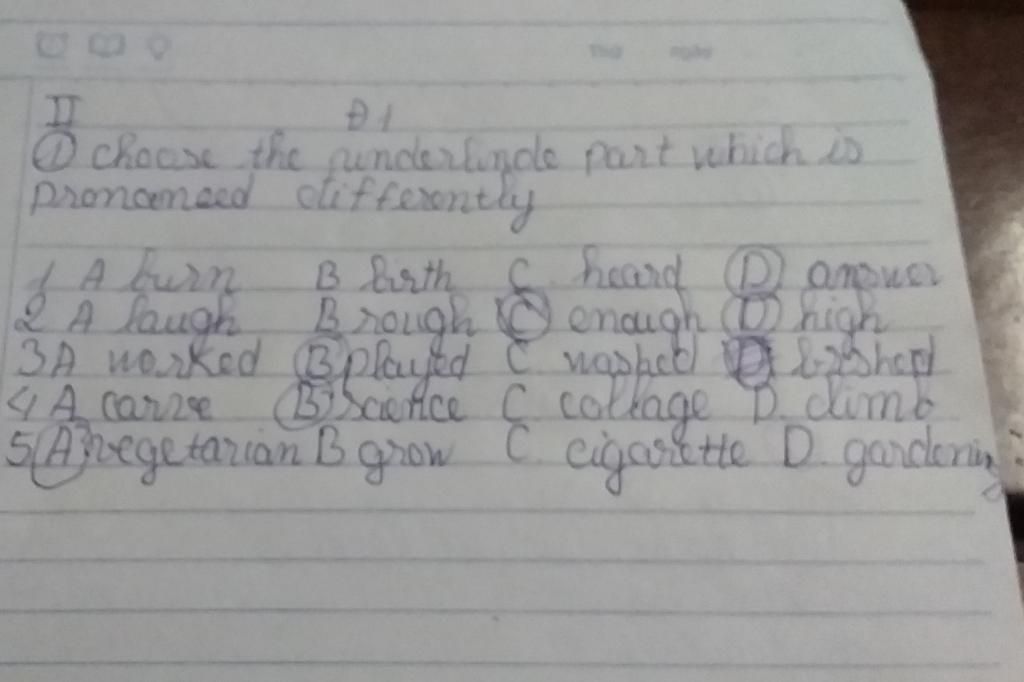 Thứ ngày
II Đ1
① choose the underlinde part which is
pronomeed differently
1 A burn B birth C. heard D answer
2 A laugh B rough C enough D high
3 A worked B played C washed D
4 A carve B science C collage D. climb
5 A vegetarian B grow C. cigarette D. gardening